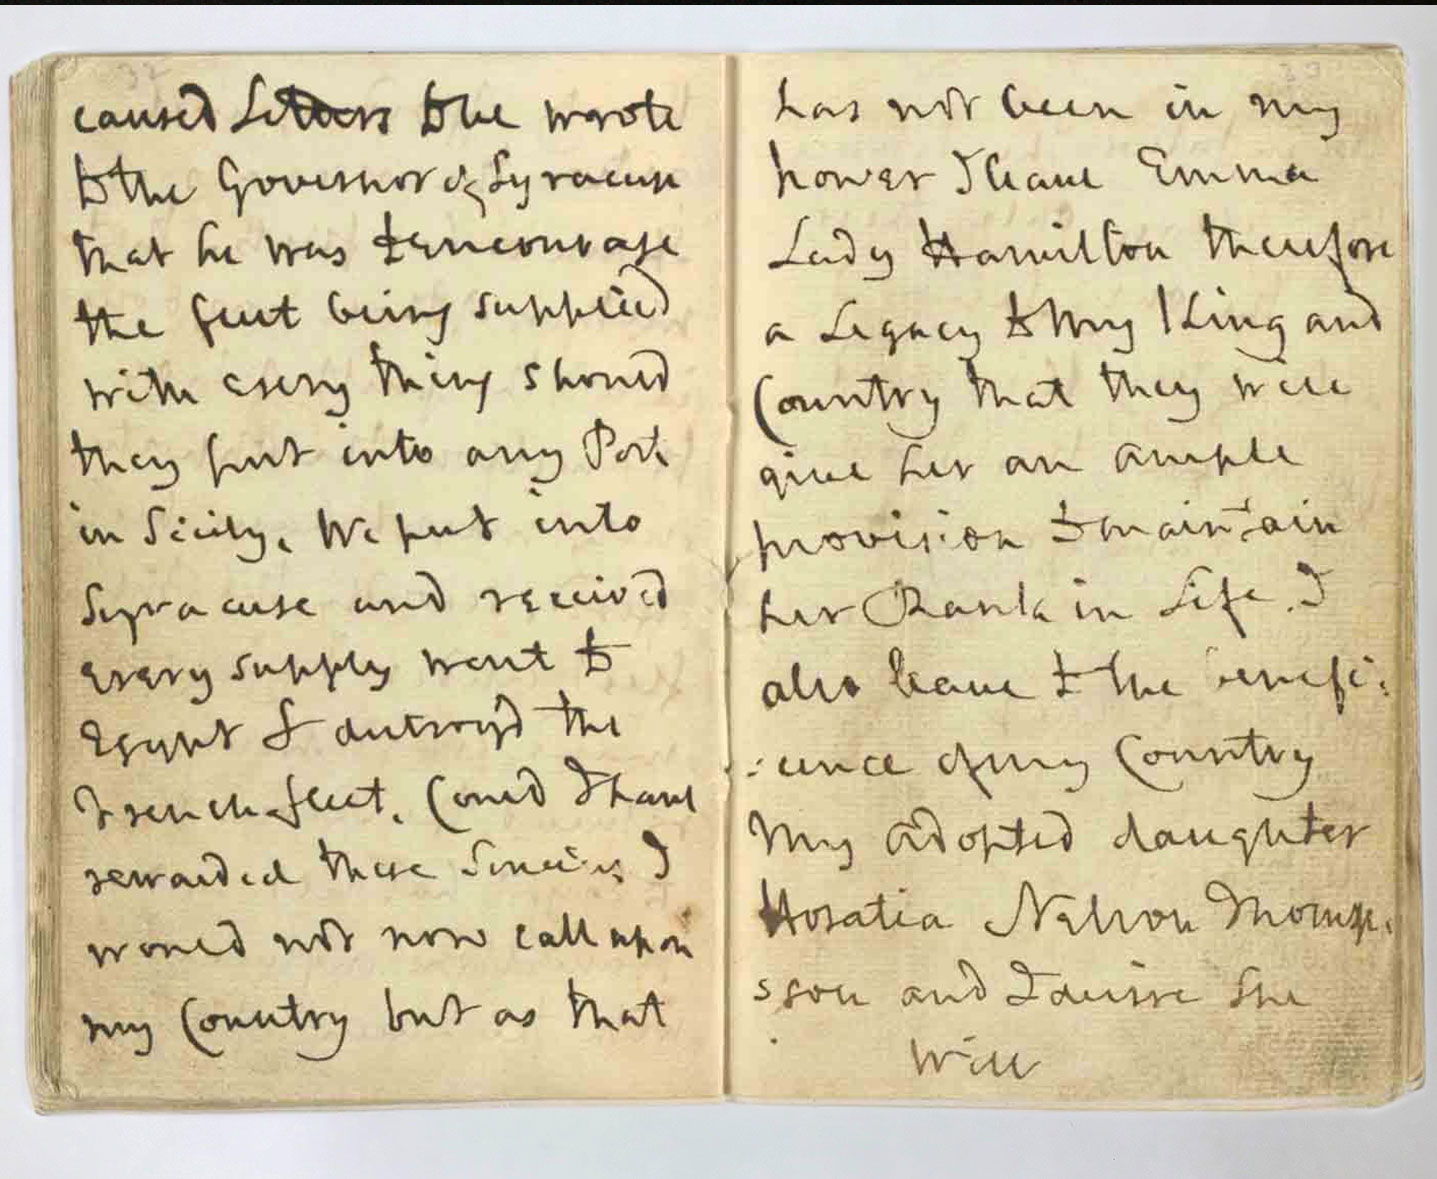 caused Letters to be wrote
to the Governor of Syracuse
that he was to encourage
the fleet being supplied
with every thing should
they put into any Port
in Sicily. We put into
Syracuse and received
every supply went to
Egypt & destroy'd the
French fleet. Coud I have
rewarded these Services I
woud not now call upon
my Country but as that
has not been in my
power I leave Emma
Lady Hamilton therefore
a Legacy to my King and
Country that they will
give her an ample
provision to maintain
her Rank in Life. I
also leave to the benefi:
:cence of my Country
My adopted daughter
Horatia Nelson Thomp:
sson and I desire She
Will